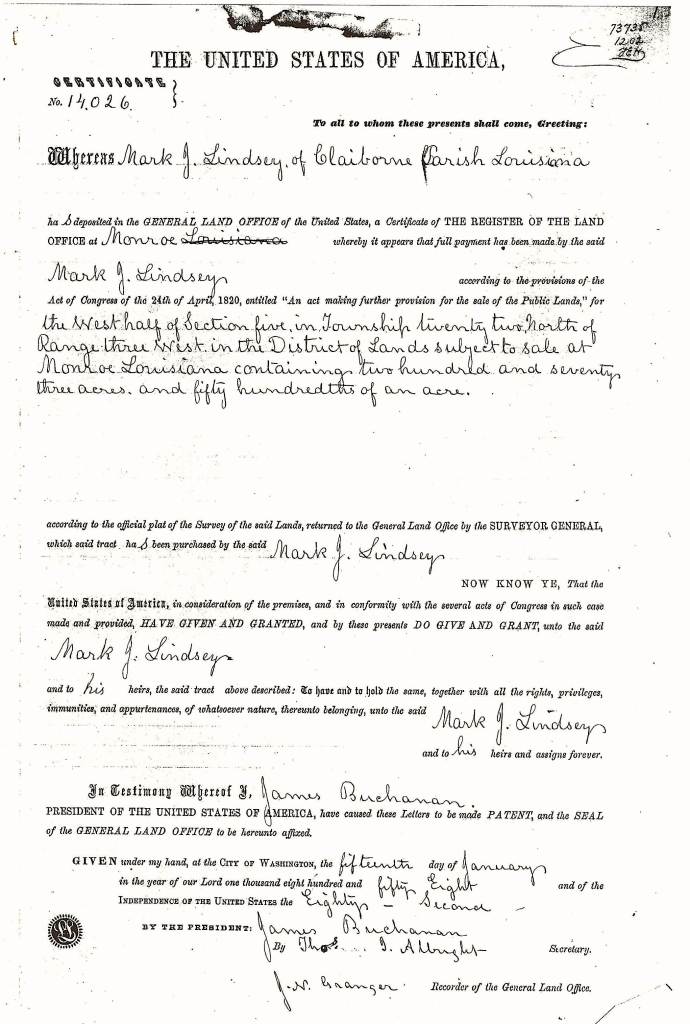 73735
1202
THE UNITED STATES OF AMERICA,
CERTIFICATE
No. 14,026
To all to whom these presents shall come, Greeting:
Whereas Mark J. Lindsey, of Claiborne Parish Louisiana
ha s deposited in the GENERAL LAND OFFICE of the United States, a Certificate of THE REGISTER OF THE LAND
OFFICE at Monroe Louisiana whereby it appears that full payment has been made by the said
Mark J. Lindsey according to the provisions of the
Act of Congress of the 24th of April, 1820, entitled "An act making further provision for the sale of the Public Lands," for
the West half of Section five, in Township twenty two, North of
Range three West, in the District of Lands subject to sale at
Monroe Louisiana containing two hundred and seventy
three acres, and fifty hundredths of an acre.
according to the official plat of the Survey of the said Lands, returned to the General Land Office by the SURVEYOR GENERAL,
which said tract ha s been purchased by the said Mark J. Lindsey
NOW KNOW YE, That the
United States of America, in consideration of the premises, and in conformity with the several acts of Congress in such case
made and provided, HAVE GIVEN AND GRANTED, and by these presents DO GIVE AND GRANT, unto the said
Mark J. Lindsey
and to his heirs, the said tract above described: To have and to hold the same, together with all the rights, privileges,
immunities, and appurtenances, of whatsoever nature, thereunto belonging, unto the said Mark J. Lindsey
and to his heirs and assigns forever.
In Testimony Whereof I, James Buchanan,
PRESIDENT OF THE UNITED STATES OF AMERICA, have caused these Letters to be made PATENT, and the SEAL
of the GENERAL LAND OFFICE to be hereunto affixed.
GIVEN under my hand, at the CITY OF WASHINGTON, the fifteenth day of January
in the year of our Lord one thousand eight hundred and fifty Eight and of the
INDEPENDENCE OF THE UNITED STATES the Eighty - Second -
BY THE PRESIDENT: James Buchanan
By Thos. J. Albright Secretary.
J. N. Granger Recorder of the General Land Office.